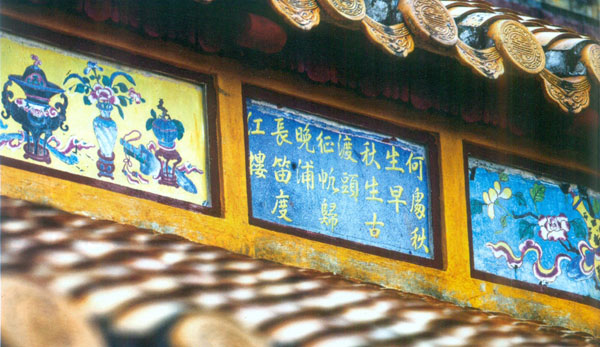 何處秋
生早
秋生古
渡頭
征帆歸
晚浦
長笛度
江樓